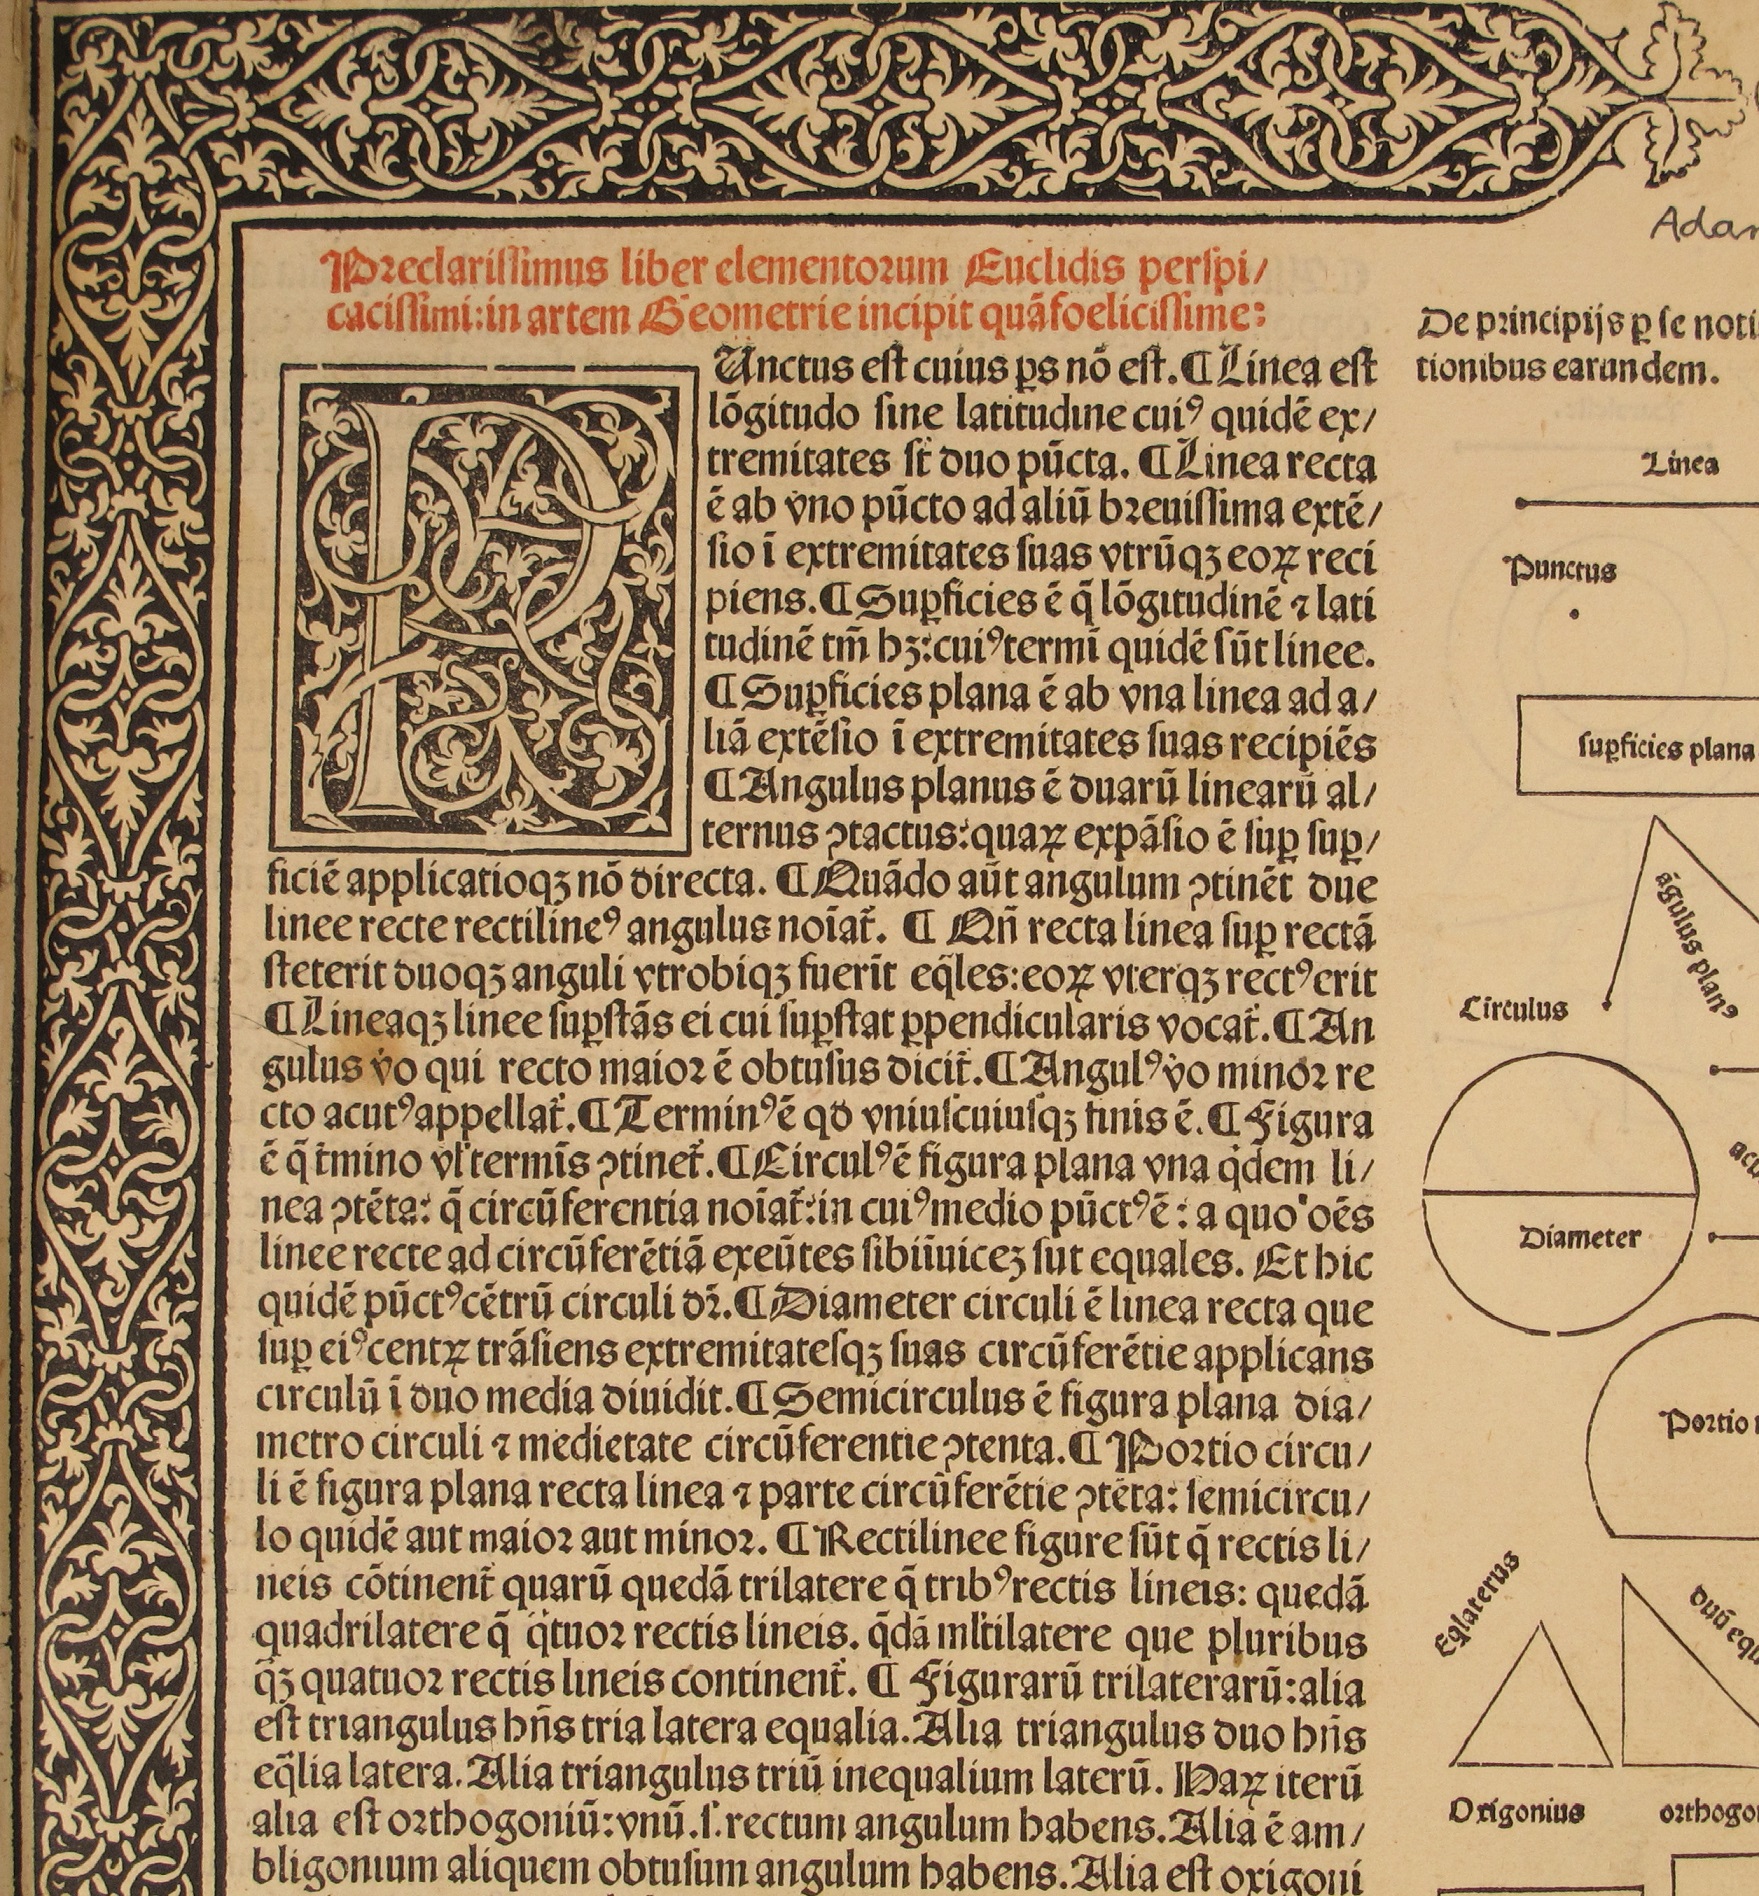 Preclarissimus liber elementorum Euclidis perspi/
cacissimi: in artem Geometrie incipit quãfoelicissime:
PUnctus est cuius ꝑs nõ est. ¶ Linea est
lõgitudo sine latitudine cuiꝰ quidẽ ex/
tremitates st̃ duo pũcta. ¶ Linea recta
ẽ ab vno pũcto ad aliũ breuissima extẽ/
sio ĩ extremitates suas vtrũqꝫ eoꝝ reci
piens. ¶ Supꝑficies ẽ q̃ lõgitudinẽ ⁊ lati
tudinẽ tm̃ hꝫ: cuiꝰ termĩ quidẽ sũt linee.
¶ Suꝑficies plana ẽ ab vna linea ad a/
liã extẽsio ĩ extremitates suas recipiẽs
¶ Angulus planus ẽ duarũ linearũ al/
ternus ꝯtactus: quaꝝ expãsio ẽ suꝑ suꝑ/
ficiẽ applicatioqꝫ nõ directa. ¶ Quãdo aũt angulum ꝯtinẽt due
linee recte rectilineꝰ angulus noĩat̃. ¶ Qñ recta linea suꝑ rectã
steterit duoqꝫ anguli vtrobiqꝫ fuerĩt eq̃les: eoꝝ vterqꝫ rectꝰ erit
¶ Lineaqꝫ linee suꝑstãs ei cui suꝑstat ꝑpendicularis vocat̃. ¶ An
gulus vo qui recto maior ẽ obtusus dicit̃. ¶ Angulꝰ vo minor re
cto acutꝰ appellat̃. ¶ Terminꝰ ẽ qđ vniuscuiusqꝫ finis ẽ. ¶ Figura
ẽ q̃ t̃mino vl̃ termĩs ꝯtinet̃. ¶ Circulꝰ ẽ figura plana vna q̃dem li/
nea ꝯtẽta: q̃ circũferentia noĩat̃: in cuiꝰ medio pũctꝰ ẽ: a quo oẽs
linee recte ad circũferẽtiã exeũtes sibiĩuiceꝫ sut equales. Et hic
quidẽ pũctꝰ cẽtrũ circuli dr̃. ¶ Diameter circuli ẽ linea recta que
suꝑ eiꝰ centꝝ trãsiens extremitatesqꝫ suas circũferẽtie applicans
circulũ ĩ duo media diuidit. ¶ Semicirculus ẽ figura plana dia/
metro circuli ⁊ medietate circũferentie ꝯtenta. ¶ Portio circu/
li ẽ figura plana recta linea ⁊ parte circũferẽtie ꝯtẽta: semicircu/
lo quidẽ aut maior aut minor. ¶ Rectilinee figure sũt q̃ rectis li/
neis cõtinent̃ quarũ quedã trilatere q̃ tribꝰ rectis lineis: quedã
quadrilatere q̃ q̃tuor rectis lineis. q̃dã ml̃tilatere que pluribus
q̃ꝫ quatuor rectis lineis continent̃. ¶ Figurarũ trilaterarũ: alia
est triangulus hñs tria latera equalia. Alia triangulus duo hñs
eq̃lia latera. Alia triangulus triũ inequalium laterũ. Haꝝ iterũ
alia est orthogoniũ: vnũ .s. rectum angulum habens. Alia ẽ am/
bligonium aliquem obtusum angulum habens. Alia est oxigoni
Adam
De principijs ꝑ se noti
tionibus earundem.
Linea
Punctus
suꝑficies plana
ãgulus planꝰ
Circulus
Diameter
Portio
Eq̃laterus
duũ equ
Oxigonius
orthogo